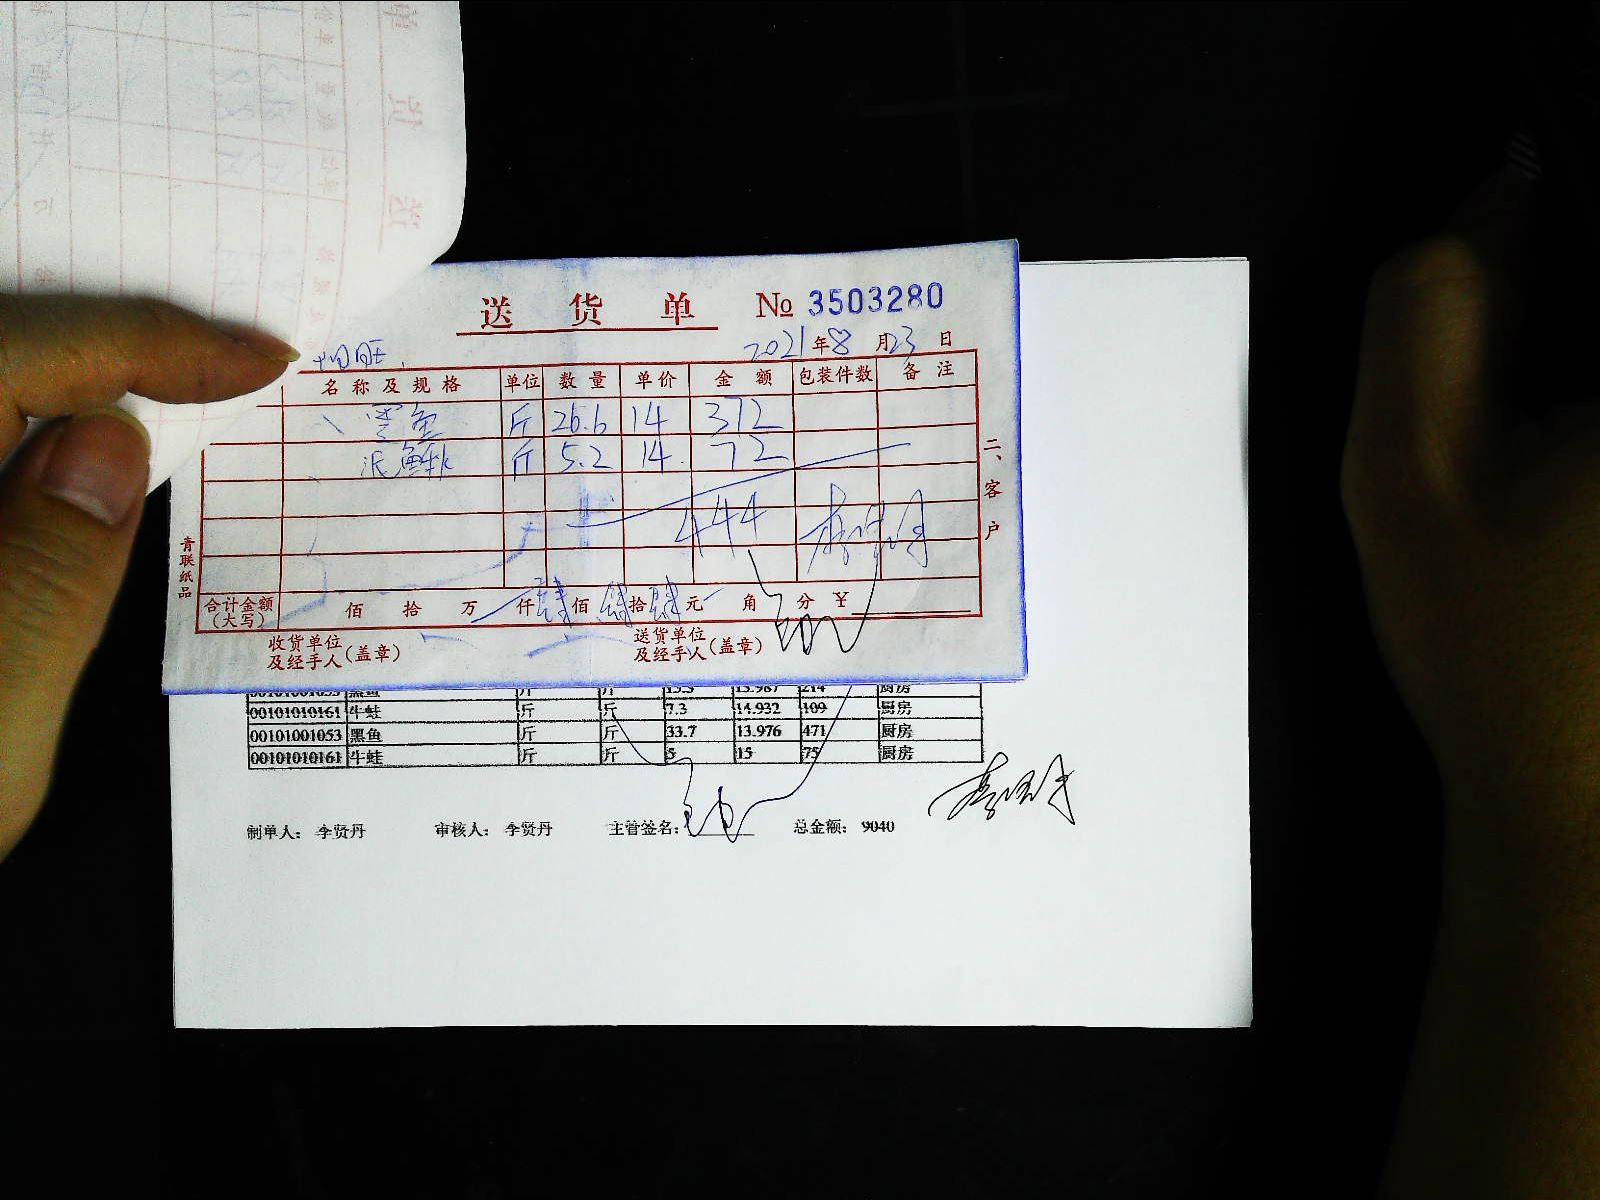 送 货 单 № 3503280
2021年8月23日
名称及规格 单位 数量 单价 金额 包装件数 备注
黑鱼 斤 26.6 14 372
泥鳅 斤 5.2 14 72
444
合计金额(大写) 佰 拾 万 仟肆佰肆拾肆元 角 分 ¥
收货单位及经手人(盖章) 送货单位及经手人(盖章)
二、客户
青联纸品
00101001053 黑鱼 斤 斤 15.3 13.987 214 厨房
00101010161 牛蛙 斤 斤 7.3 14.932 109 厨房
00101001053 黑鱼 斤 斤 33.7 13.976 471 厨房
00101010161 牛蛙 斤 斤 5 15 75 厨房
制单人: 李贤丹 审核人: 李贤丹 主管签名: 总金额: 9040